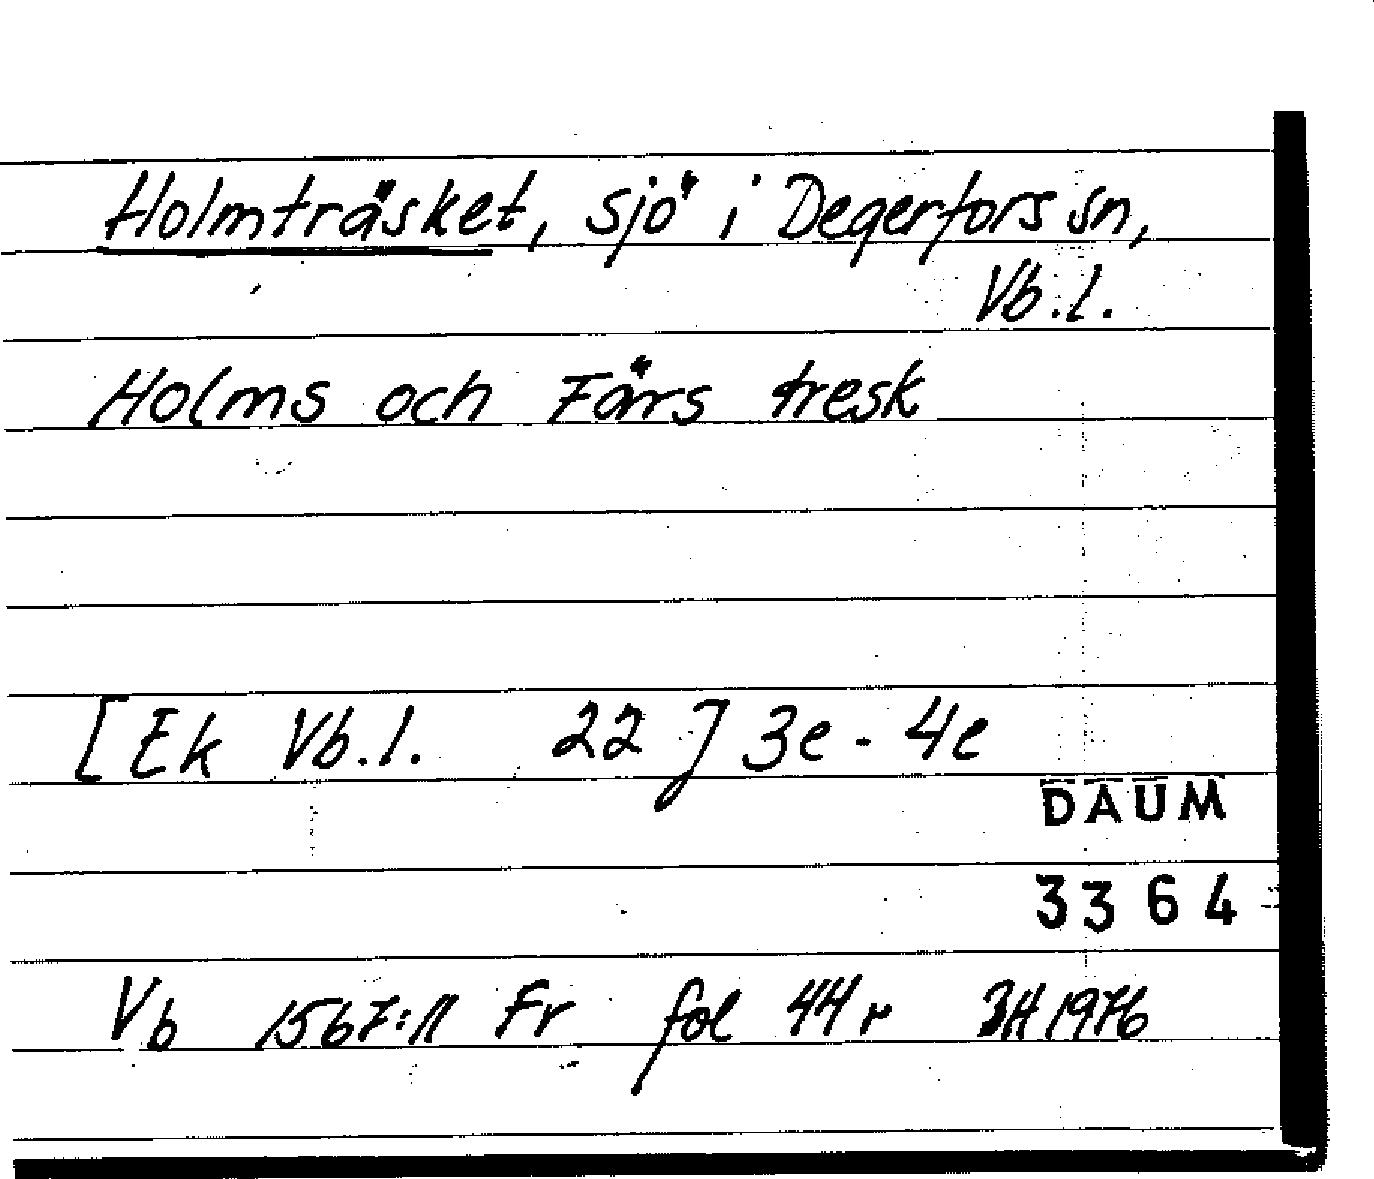 Holmträsket, sjö i Degerfors sn,
Vb.l.
Holms och Färs tresk
[Ek Vb.l. 22 J 3e - 4e
DAUM
3364
Vb 1567:11 Fr fol 44 r BH 1976